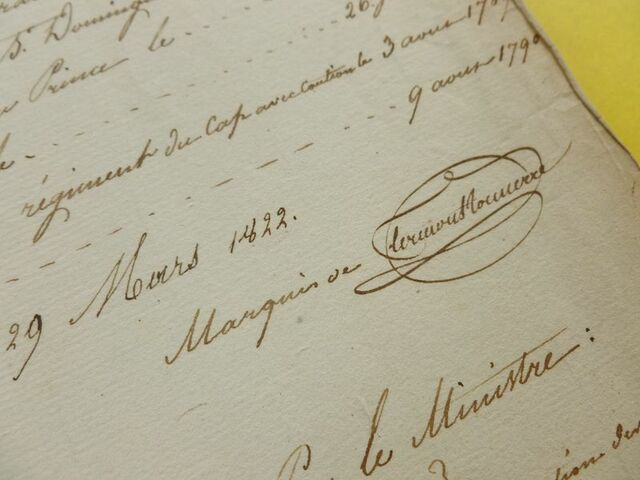 St Domingue
Prince le 26.
régiment du Cap avec Caution le 3 aout 17
9 aout 1790
29 Mars 1822.
Marquis de Clermont Tonnerre
le Ministre: